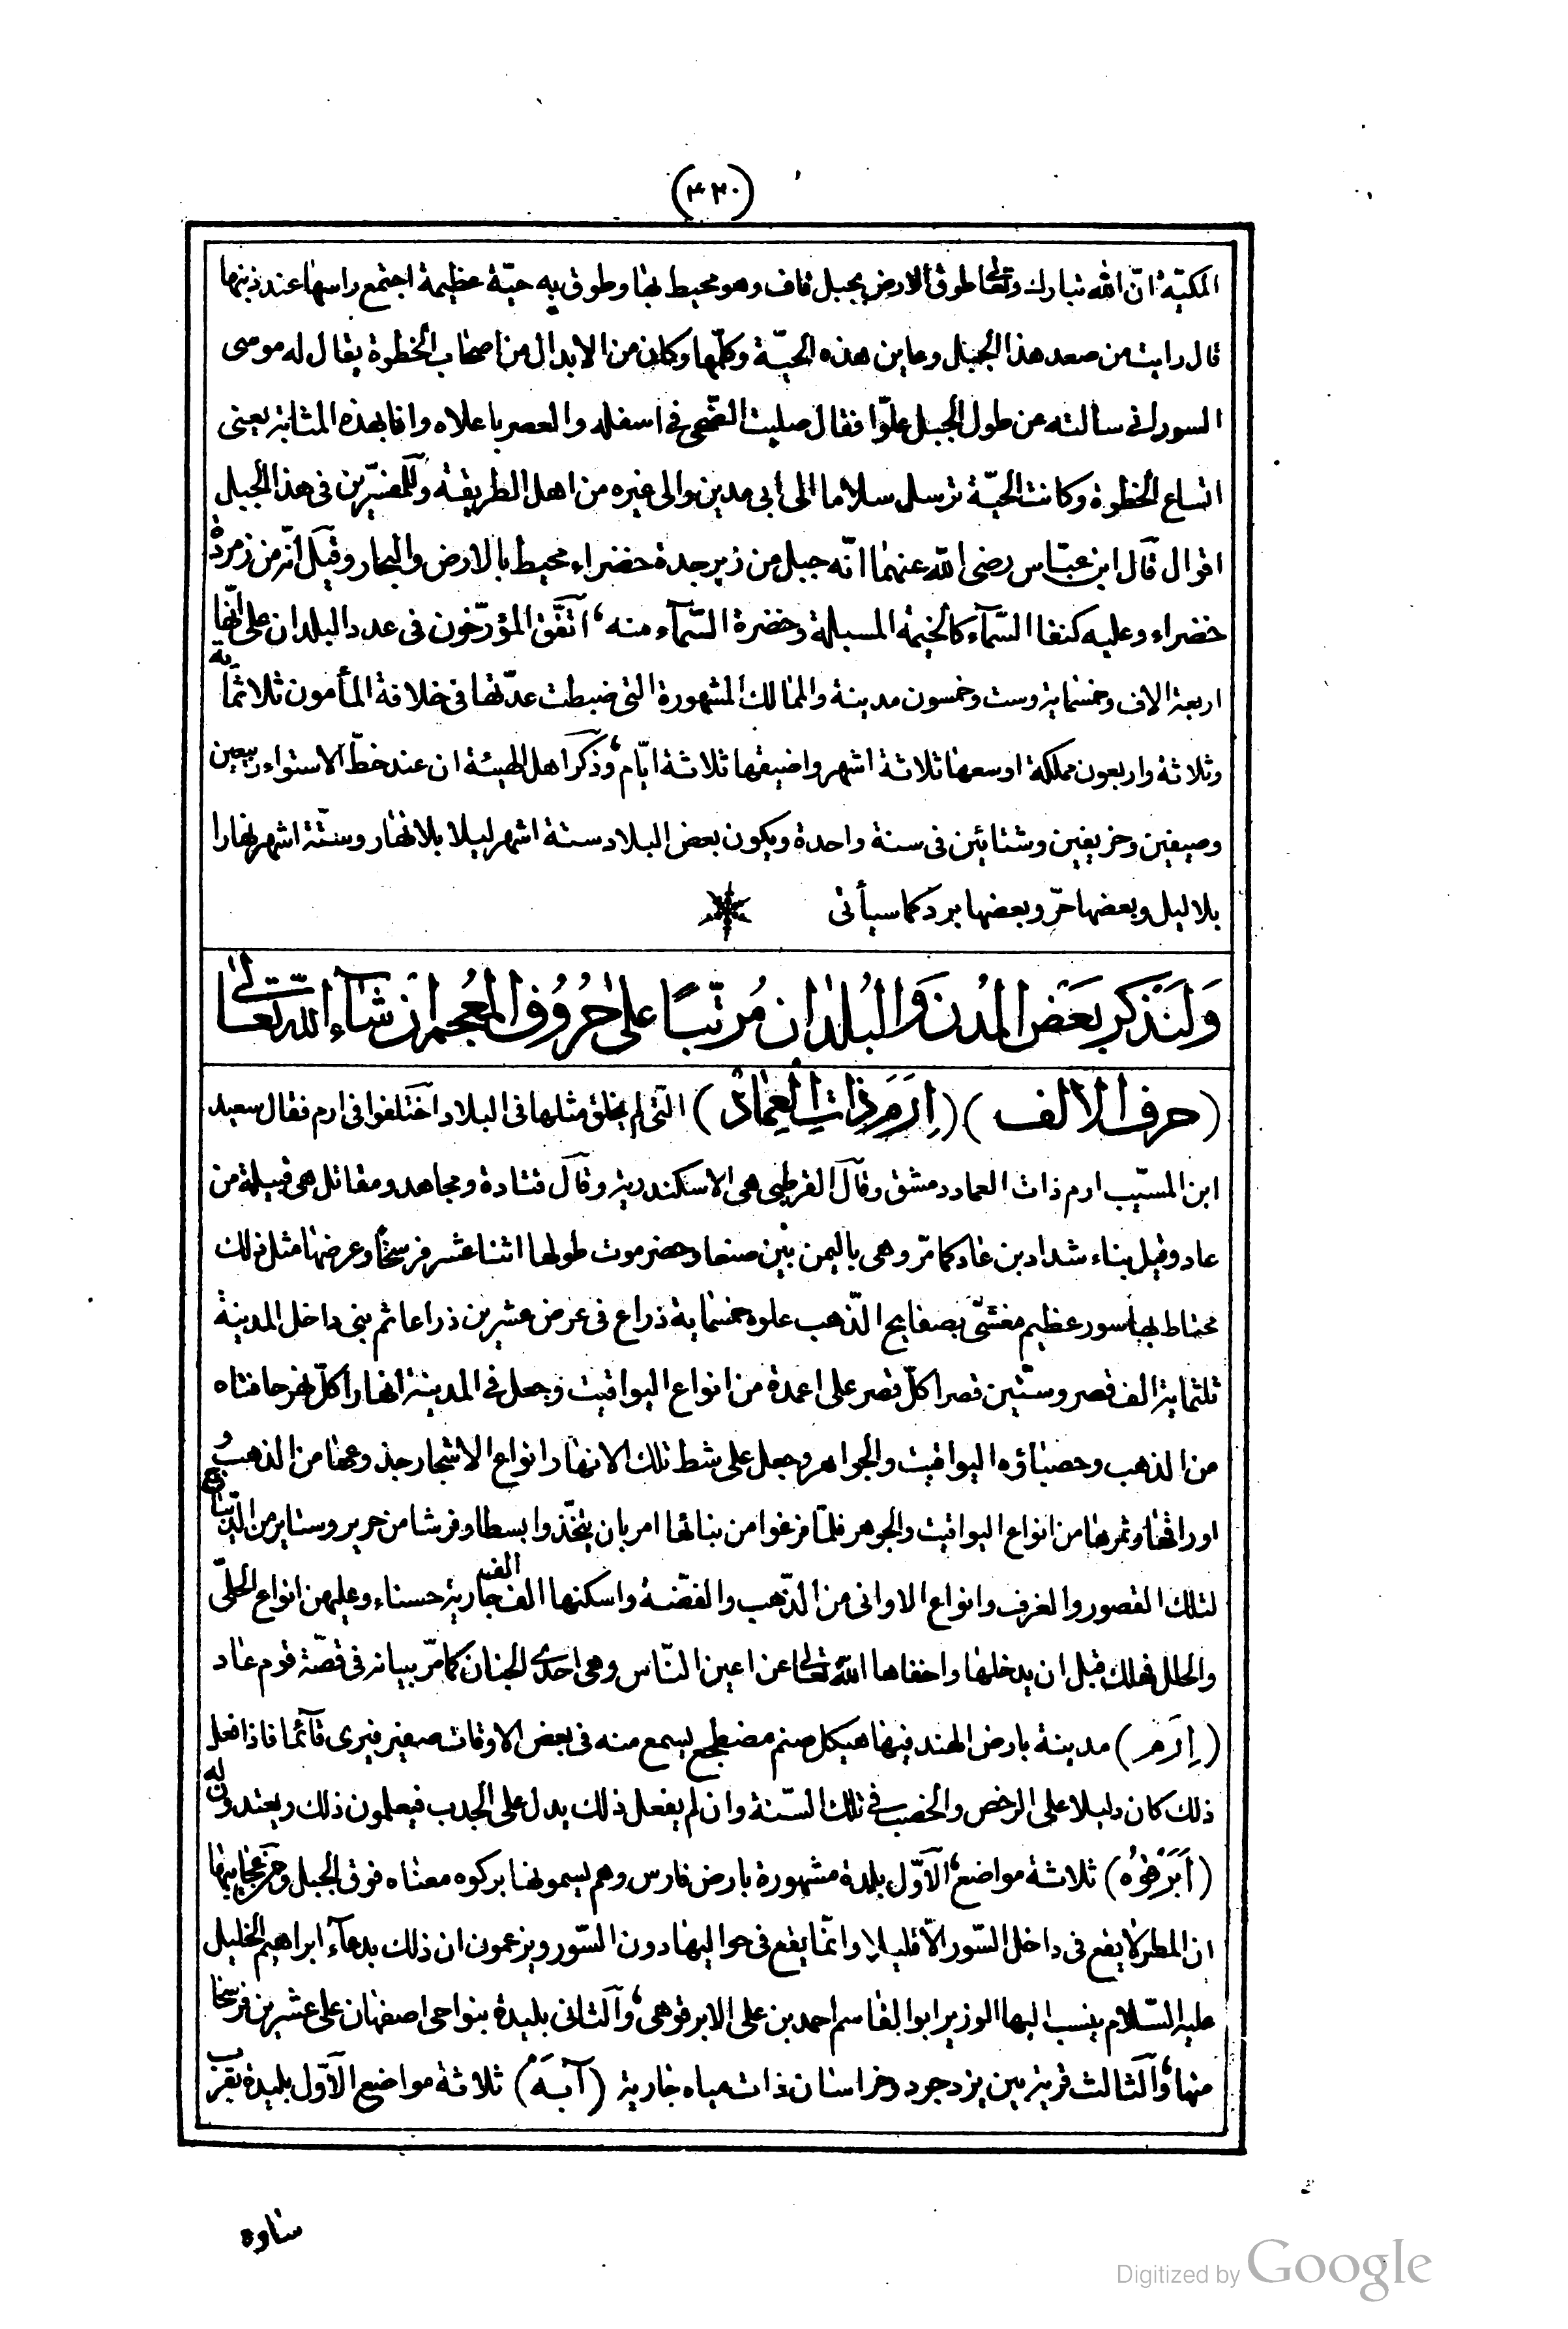 (۴۳۰)
المكيّة انّ الله تبارك وتعالى طوق الارض بجبل قاف وهو محيط بها وطوق به حيّة عظيمة اجتمع راسها عند ذنبها
قال رايت من صعد هذا الجبل وعاين هذه الحيّة وكلّمها وكان من الابدال من اصحاب الخطوة يقال له موسى
السورانى سالته عن طول الجبل علوّا فقال صليت الضّحى فى اسفله والعصر باعلاه وانا بهذه المثابة يعنى
اتساع الخطوة وكانت الحيّة ترسل سلاما الى أبى مدين والى غيره من اهل الطريقة وللمفسّرين فى هذا الجبل
اقوال قال ابن عبّاس رضى الله عنهما انّه جبل من زبرجدة خضراء محيط بالارض والبحار وقيل انّه من زمردة
خضراء وعليه كنفا السّمآء كالخيمة المسبلة وخضرة السّمآء منه، اتّفق المؤرّخون فى عدد البلدان على انّها
اربعة الاف وخمسماية وست وخمسون مدينة والممالك المشهورة التى ضبطت عدّتها فى خلافة المأمون ثلاثماية
وثلاثة واربعون مملكة اوسعها ثلاثة اشهر واضيقها ثلاثة ايّام، وذكر اهل الهيئة ان عند خطّ الاستواء ربيعين
وصيفين وخريفين وشتائين فى سنة واحدة ويكون بعض البلاد ستة اشهر ليلا بلا نهار وستّة اشهر نهارا
بلا ليل وبعضها حرّ وبعضها برد كما سيأتى
وَلنَذكر بَعَض المُدن وَالبُلدان مُرتّبًا على حُرُوف المُعجم ان شَآءَ الله تعَالى
(حرف الالف) (اِرَمَ ذاتِ العِمادْ) التى لم يخلق مثلها فى البلاد اختلفوا فى ارم فقال سعيد
ابن المسيّب ارم ذات العماد دمشق وقال القرطبى هى الاسكندرية وقال قتادة ومجاهد ومقاتل هى قبيلة من
عاد وقيل بناء شداد بن عاد كما مرّ وهى باليمن بين صنعا وحضرموت طولها اثنا عشر فرسخًا وعرضها مثل ذلك
محتاط بها سور عظيم مغشّى بصفايح الذّهب علوه خمسماية ذراع فى عرض عشرين ذراعا ثم بنى داخل المدينة
ثلثماية الف قصر وستّين قصرا كلّ قصر على اعمدة من انواع اليواقيت وجعل فى المدينة انهارا كلّ نهر حافتاه
من الذهب وحصباؤه اليواقيت والجواهر وجعل على شط تلك الانهار انواع الاشجار جذوعها من الذهب و
اوراقها وثمرها من انواع اليواقيت والجوهر فلمّا فرغوا من بنائها امر بان يتخّذوا بسطا وفرشا من حرير وستاير من الديباج
لتلك القصور والغرف وانواع الاوانى من الذّهب والفضّة واسكنها الف الف جارية حسناء وعليهن انواع الحلّى
والحلل فهلك قبل ان يدخلها واخفاها الله تعالى عن اعين النّاس وهى احدى الجنان كما مرّ بيانه فى قصّة قوم عاد
(اِرَم) مدينة بارض الهند فيها هيكل صنم مضطجع يسمع منه فى بعض الاوقات صفير فيرى قآئما فاذا فعل
ذلك كان دليلا على الرخص والخصب فى تلك السّنة وان لم يفعل ذلك يدل على الجدب فيعلمون ذلك ويعتدون له
(اَبَرْقوُه) ثلاثة مواضع، الاوّل بلدة مشهورة بارض فارس وهم يسمونها بركوه معناه فوق الجبل ومن عجايبها
ان المطر لا يقع فى داخل السّور الّا قليلا وانّما يقع فى حواليها دون السّور ويزعمون ان ذلك بدعآء ابراهيم الخليل
عليه السّلام ينسب اليها الوزير ابو القاسم احمد بن على الابرقوهى، والثانى بليدة بنواحى اصفهان على عشرين فرسخا
منها، والثالث قرية بين يزدجرد وخراسان ذات مياه جارية (آبَهْ) ثلاثة مواضع الاوّل بليدة بقرب
ساوه
Digitized by Google